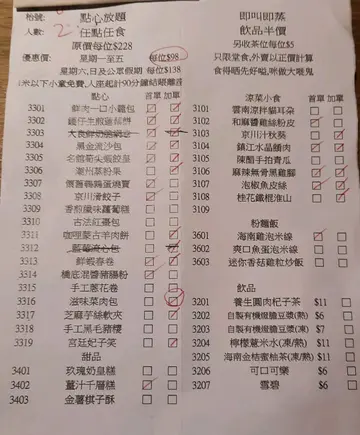 枱號:
點心放題
人數: 2
任點任食
原價每位$228
優惠價:
星期一至五 每位$98
星期六,日及公眾假期 每位$138
點心 首單 加單
3301 鮮肉一口小籠包
3303
3304 黑金流沙包
3305 名館筍尖蝦餃皇
3306 潮州蒸粉果
3308 京川滑餃子
3309 香煎臘味蘿蔔糕
3310 古法紅棗包
3311 咖喱蒸占羊肉餅
3312
3313 鮮蝦春卷
3314
3315 手工蒸花卷
3316 滋味菜肉包
3317 芝麻芋絲軟夾
3318 手工黑毛豬糭
3319 宮廷妃子笑
甜品
3401 玫瑰奶皇糕
3402 薑汁千層糕
3403 金薯棋子酥
即叫即蒸
飲品半價
另收茶位每位$5
只限堂食,外賣以正價計算
涼菜小食 首單 加單
3101 雲南涼拌貓耳朵
3102 和麻醬雞絲粉皮
3103 京川汁秋葵
3104 鎮江水晶餚肉
3105 陳醋手拍青瓜
3106 麻辣無骨黑雞腳
3107 泡椒魚皮絲
3108 桂花鐵棍淮山
3109
粉麵飯
3601 海南雞泡米線
3602 爽口魚蛋泡米線
3603 迷你香菇雞粒炒飯
飲品
3201 養生圓肉杞子茶 $11
3202 自製有機燉脆豆漿(熱) $6
3203 自製有機燉脆豆漿(凍) $7
3204 檸檬薏米水(凍/熱) $11
3205 海南金桔蜜柚茶(凍/熱) $11
3206 可口可樂 $6
3207 雪碧 $6